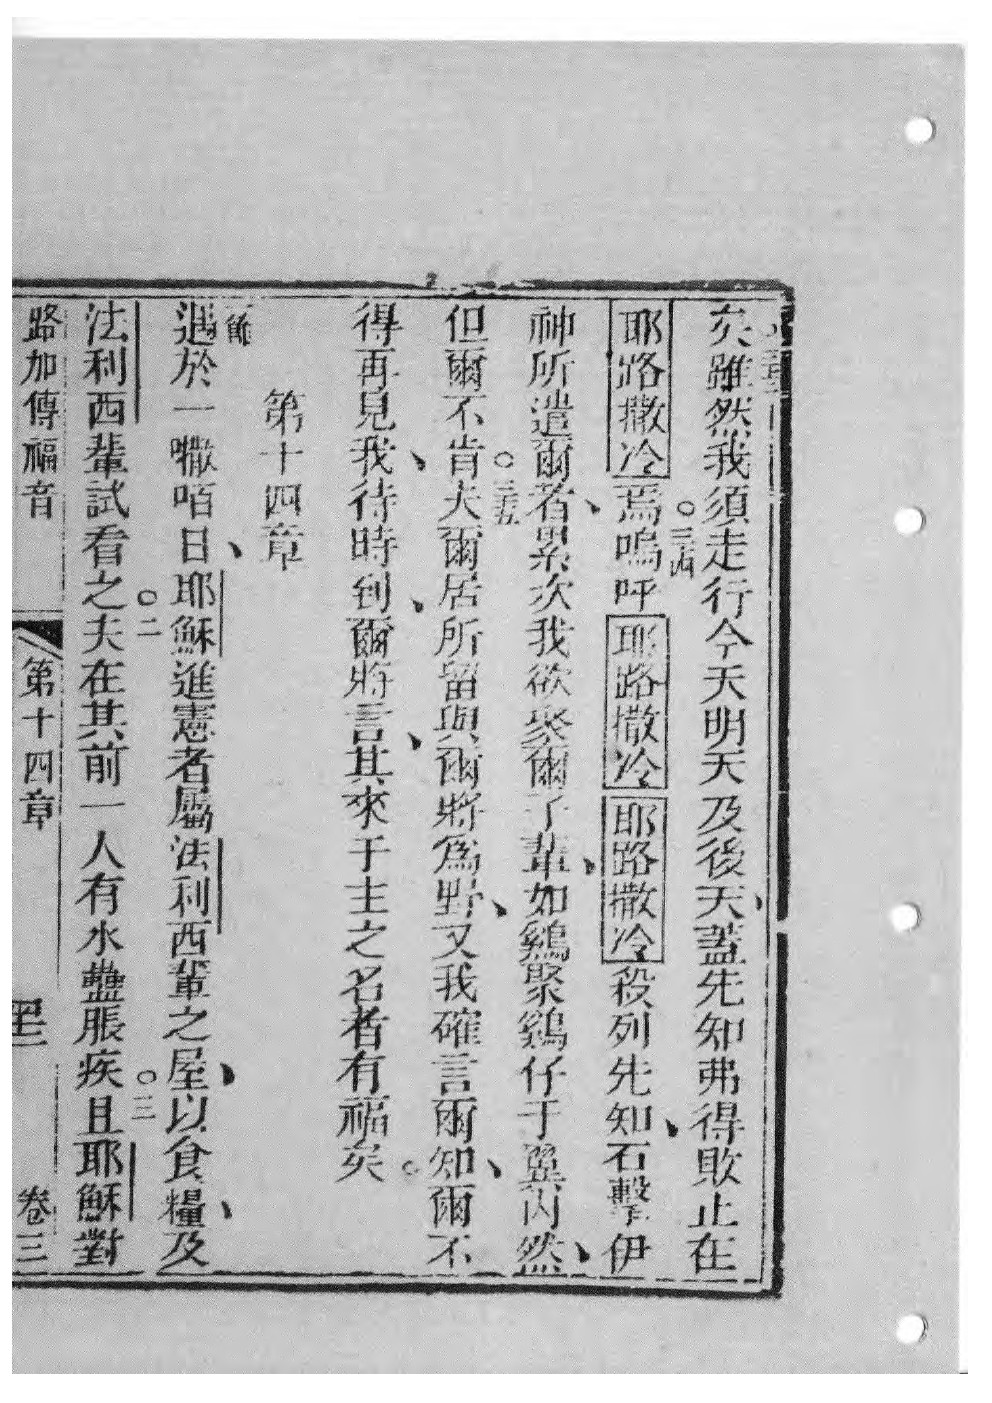 矣雖然我須走行今天明天及後天、蓋先知弗得敗止在
耶路撒冷焉○三四嗚呼耶路撒冷耶路撒冷殺列先知、石擊伊
神所遣爾者、累次我欲聚爾子輩、如鷄聚鷄仔于翼內、然
但爾不肯○三五夫爾居所留與爾將爲野、又我確言爾知、爾不
得再見我、待時到、爾將言、其來于主之名者有福矣○
第十四章
一節
遇於一㘔咟日、耶穌進憲者屬法利西輩之屋、以食糧、及
法利西輩試看之○二夫在其前一人有水蠱脹疾○三且耶穌對
路加傳福音 第十四章 卷三